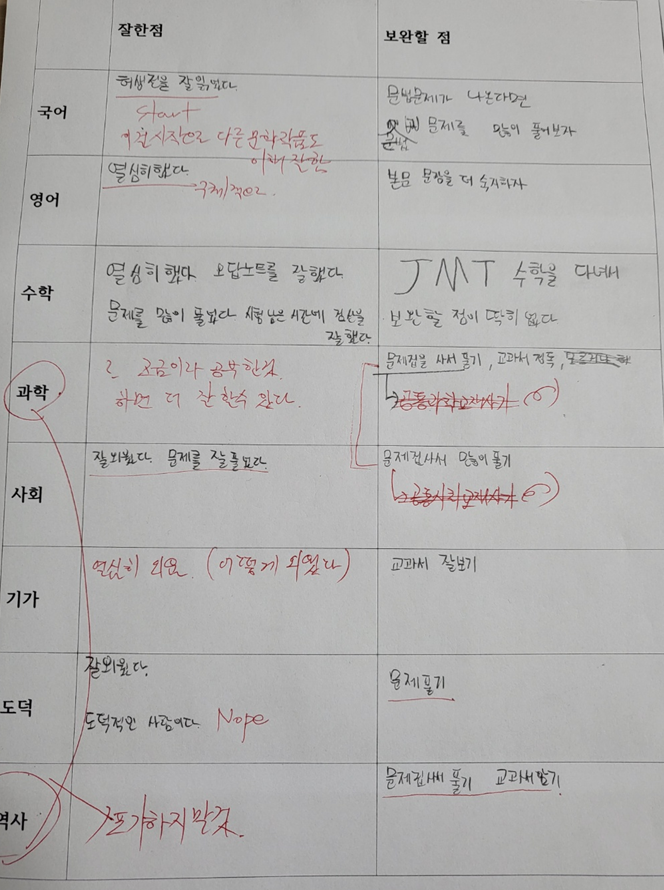 잘한점 보완할 점
국어
허생전을 잘 읽었다
start
이걸 시작으로 다른 문학작품도
이해 잘함
문법문제가 나온다면
문제를 많이 풀어보자
문법
영어
열심히했다.
구체적으로.
본문 문장을 더 숙지하자
수학
열심히했다 오답노트를 잘했다
문제를 많이 풀었다 시험 남은 시간에 검산을
잘했다
JMT 수학을 다녀서
보완할 점이 딱히 없다
과학
조금이라 공부한것.
하면 더 잘 할수 있다.
문제집을 사서 풀기, 교과서 정독,
공통과학교재사기
사회
잘외웠다. 문제를 잘 풀었다.
문제집사서 많이풀기
공통사회교재사기
기가
열심히 외운. (어떻게 외웠나)
교과서 잘보기
도덕
잘외웠다.
도덕적인 사람이다. Nope
문제풀기
역사
포기하지말것.
문제집사서 풀기